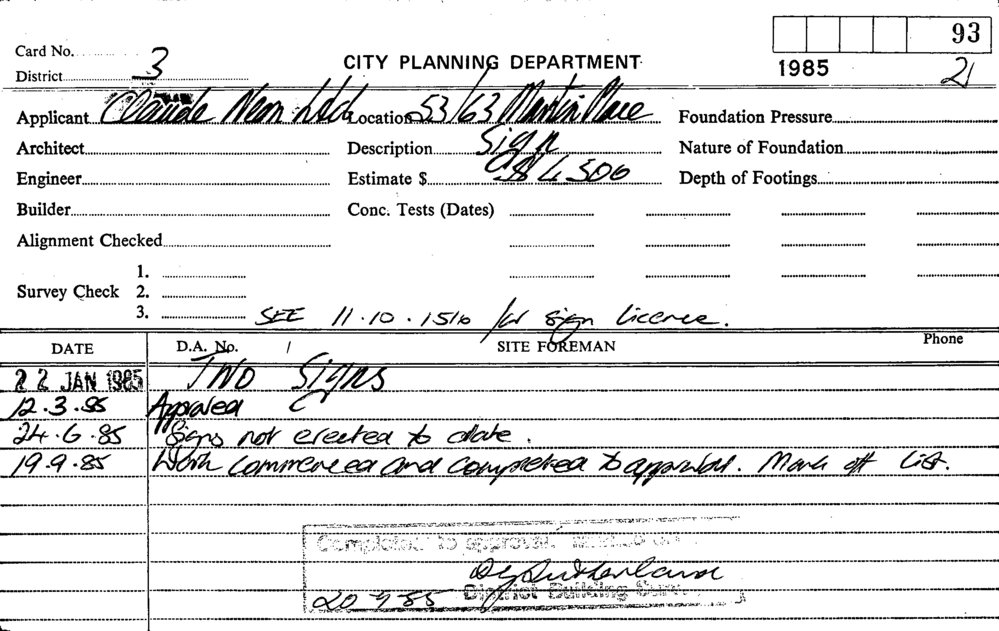 93
Card No.
CITY PLANNING DEPARTMENT
1985
21
District 3
Applicant Claude Neon Ltd Location 53/63 Martin Place Foundation Pressure
Architect Description Sign Nature of Foundation
Engineer Estimate $ $4500 Depth of Footings
Builder Conc. Tests (Dates)
Alignment Checked
1.
Survey Check 2.
3. SEE 11.10.1516 for sign licence.
DATE D.A. No. SITE FOREMAN Phone
22 JAN 1985 Two Signs
12.3.85 Approved
24.6.85 Signs not erected to date.
19.9.85 Work commenced and completed to approval. Mark off list.
Completed to approval.
Sutherland
20 9 85 District Building Surv.